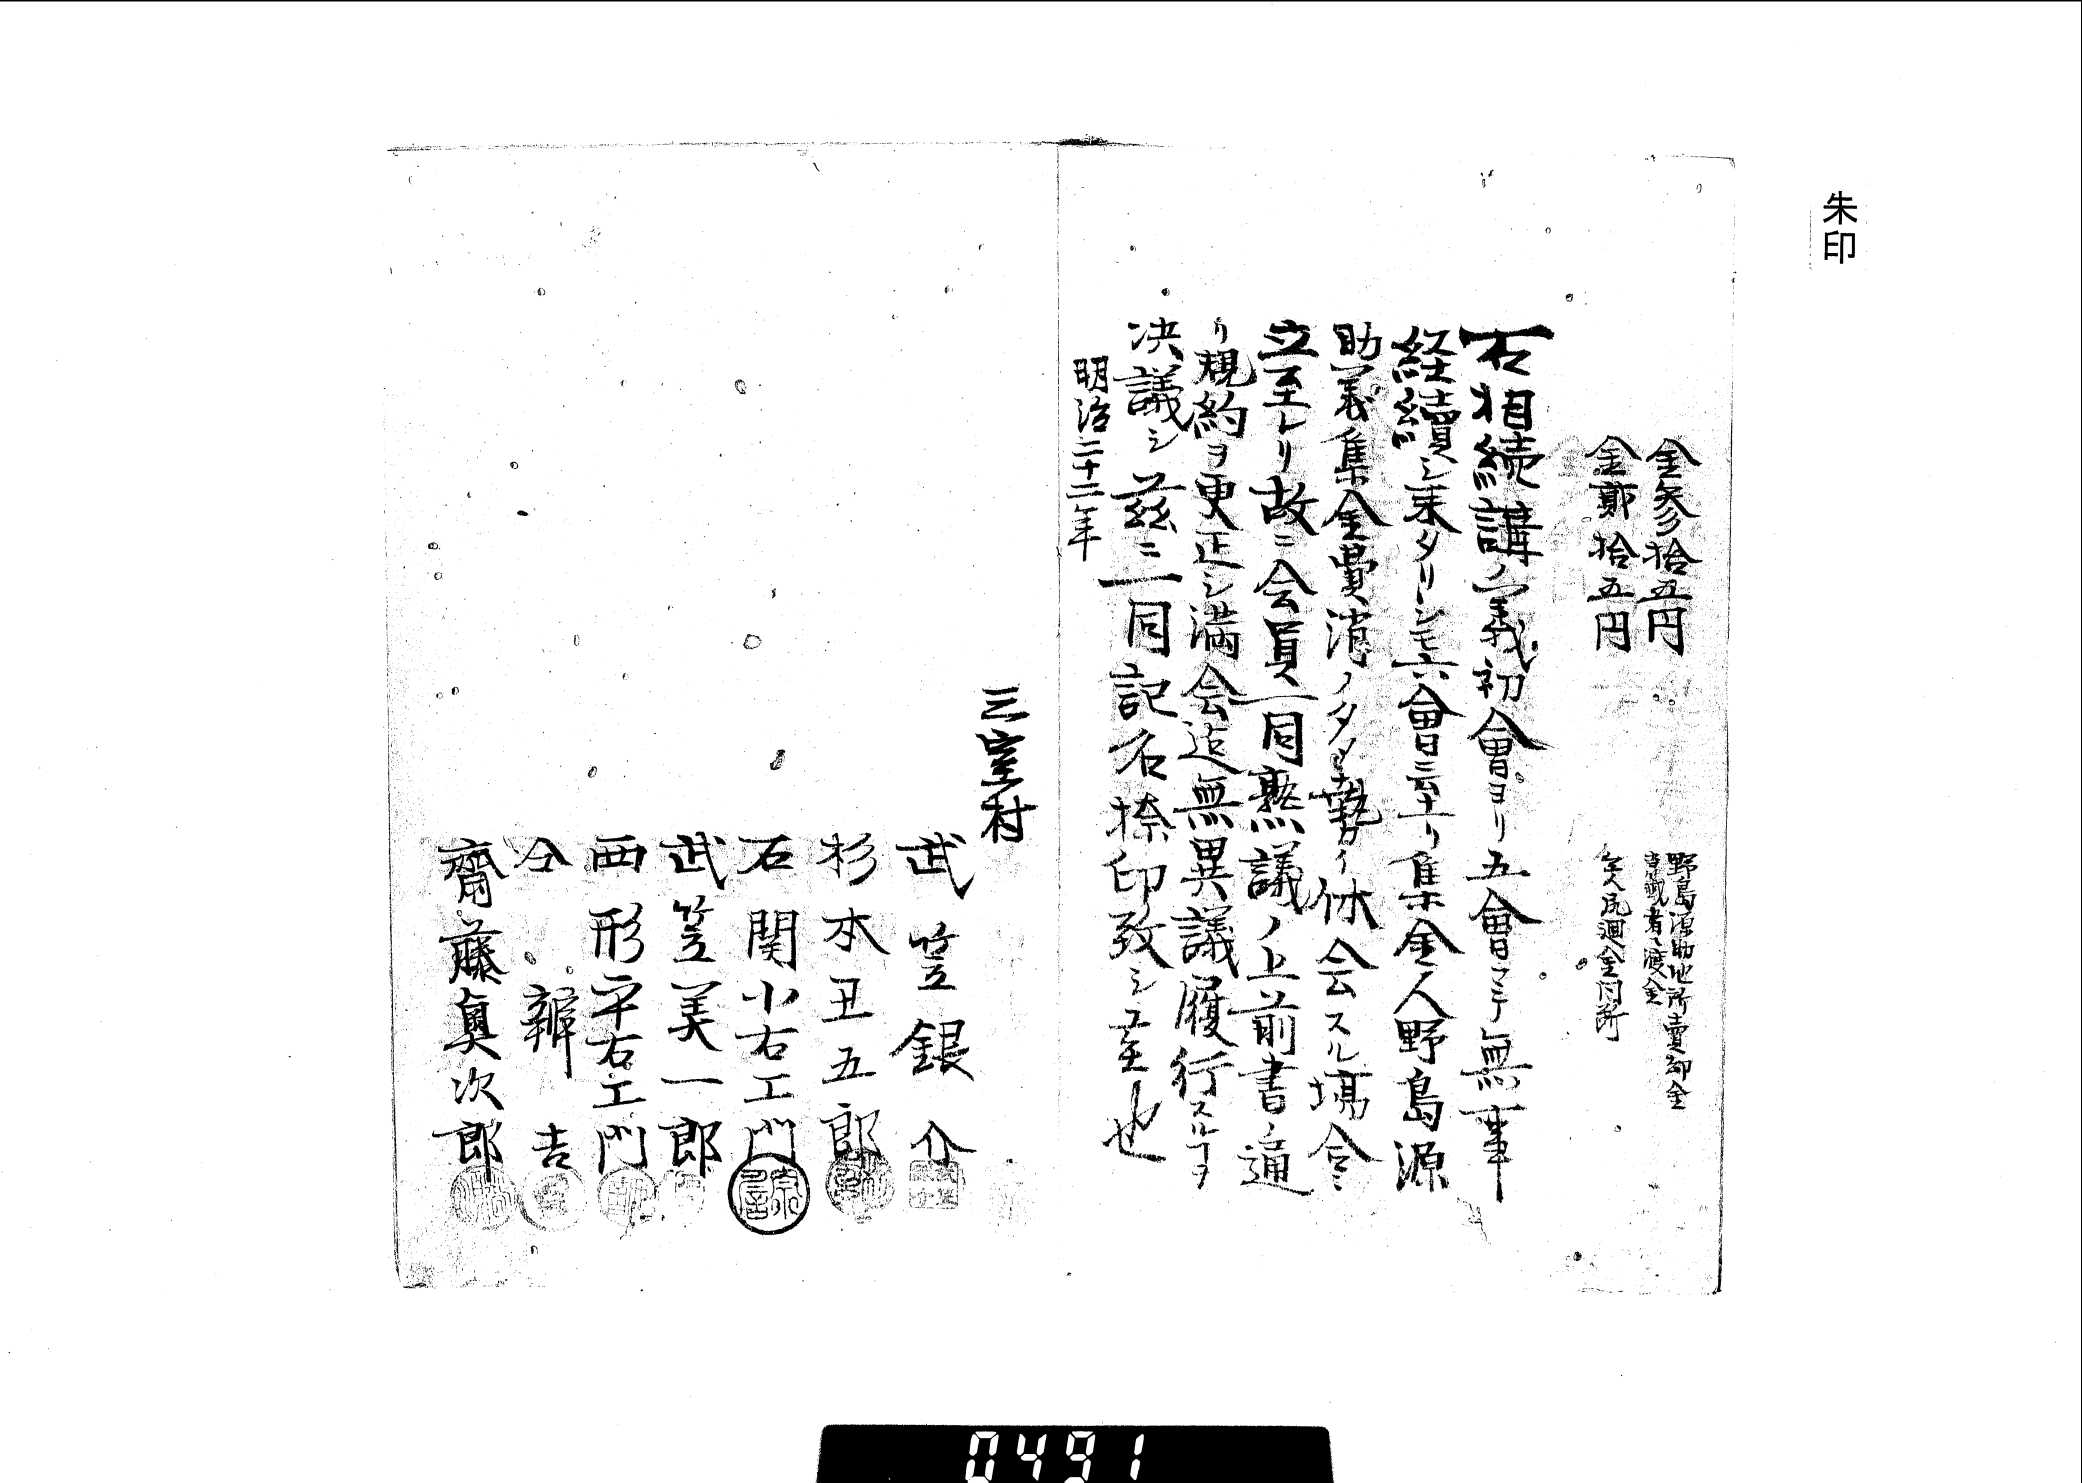 朱印
金参拾五円
野島源助地所賣却金
者ヘ渡金
金鄭拾五円
尻廻金同所
右相続講ノ義初會ヨリ五會マテ無事
経續シ来タリシモ六會ニ至リ集金人野島源
助義集金費消ノタメ勢ヒ休会スル場合ニ
立至レリ故ニ会員一同熟議ノ上前書ノ通
リ規約ヲ更正シ満会迄無異議履行スルヿヲ
决議シ茲ニ一同記名捺印致シ置也
明治二十二年
三室村
武笠銀介
杉本丑五郎
石関小右エ門
武笠美一郎
西形平右エ門
仝辨吉
齋藤眞次郎
0491